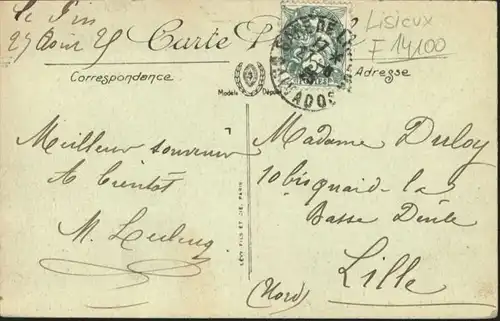 Le Pin
27 Aout 25
Carte
Lisieux
F 14100
Correspondance
Adresse
Modèle Déposé
CALVADOS
Meilleur souvenir
A bientôt
M. Leclercq
LÉVY FILS ET CIE, PARIS
Madame Duloy
10bis quai de la
Basse Deûle
Lille
(Nord)